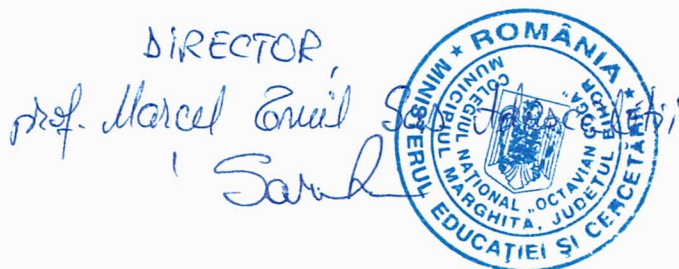 DIRECTOR,
prof. Marcel Emil Sas
★ ROMÂNIA ★
MINISTERUL EDUCAȚIEI ȘI CERCETĂRII
COLEGIUL NAȚIONAL „OCTAVIAN GOGA”
MUNICIPIUL MARGHITA, JUDEȚUL BIHOR